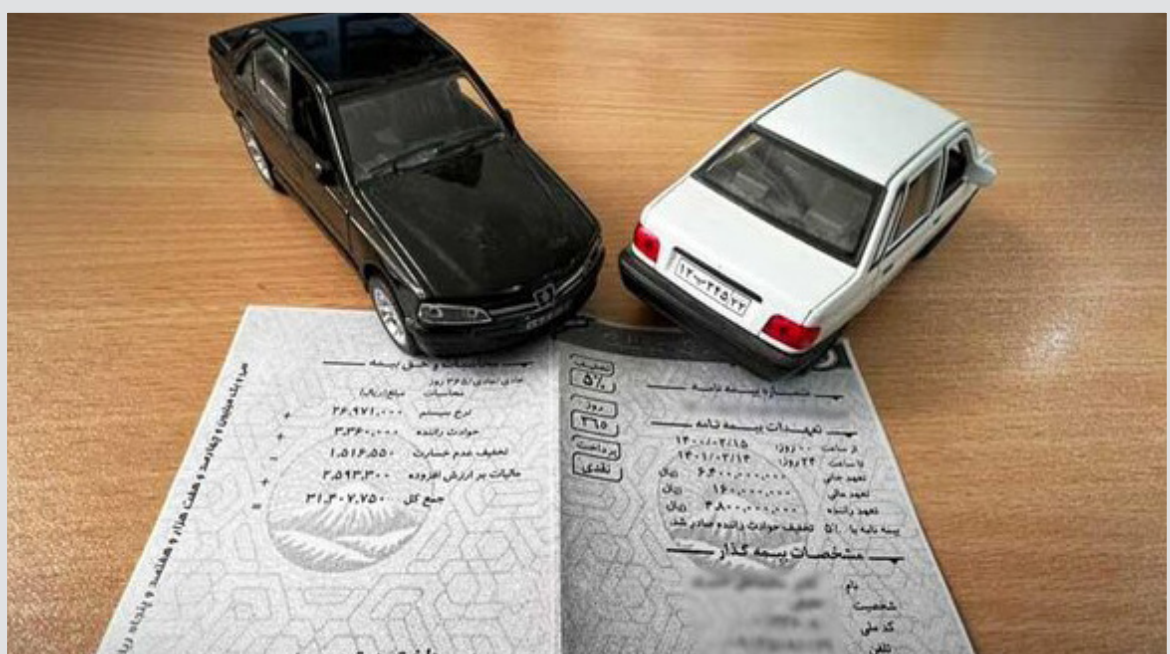 محاسبات و حق بیمه
عادی/عادی/۳۶۵ روز
محاسبات مبلغ(ریال)
نرخ سیستم ۲۶,۹۷۱,۰۰۰
+ حوادث راننده ۳,۳۶۰,۰۰۰
- تخفیف عدم خسارت ۱,۵۱۶,۵۵۰
+ مالیات بر ارزش افزوده ۲,۵۹۳,۳۰۰
= جمع کل ۳۱,۴۰۷,۷۵۰
سی و یک میلیون و چهارصد و هفت هزار و هفتصد و پنجاه ریا
تخفیف
۵٪
روز
۳۶۵
پرداخت
نقدی
شماره بیمه نامه
تعهدات بیمه نامه
از ساعت ۰۰ روز: ۱۴۰۰/۰۲/۱۵
تا ساعت ۲۴ روز: ۱۴۰۱/۰۲/۱۴
تعهد جانی ۶,۴۰۰,۰۰۰,۰۰۰ ریال
تعهد مالی ۱۶۰,۰۰۰,۰۰۰ ریال
تعهد راننده ۴,۸۰۰,۰۰۰,۰۰۰ ریال
بیمه نامه با ۵٪ تخفیف حوادث راننده صادر شد.
مشخصات بیمه گذار
نام
شخصیت
کد ملی
تلفن